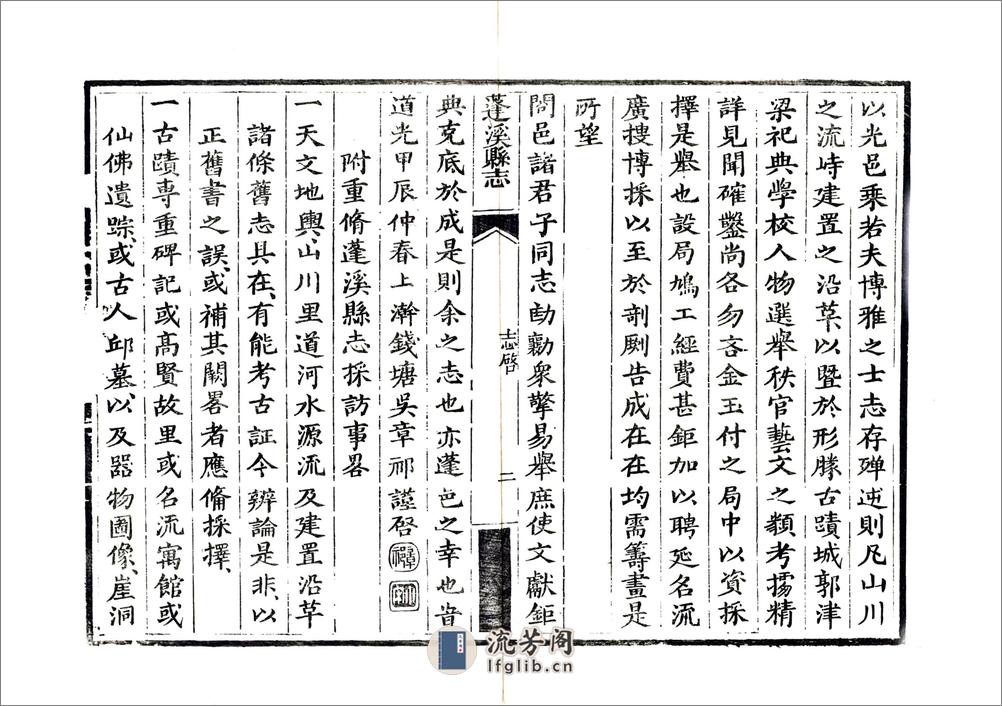 以光邑乘若夫博雅之士志存殫述則凡山川
之流峙建置之沿革以暨於形勝古蹟城郭津
梁祀典學校人物選舉秩官藝文之類考擩精
詳見聞確鑿尚各勿吝金玉付之局中以資採
擇是舉也設局鳩工經費甚鉅加以聘延名流
廣搜博採以至於剞劂告成在在均需籌畫是
所望
閤邑諸君子同志劻勷衆擎易舉庶使文獻鉅
蓬溪縣志
志啓
二
典克底於成是則余之志也亦蓬邑之幸也旹
道光甲辰仲春上澣錢塘吳章祁謹啓
附重脩蓬溪縣志採訪事畧
一天文地輿山川里道河水源流及建置沿革
諸條舊志具在有能考古証今辨論是非以
正舊書之誤或補其闕畧者應備採擇
一古蹟專重碑記或高賢故里或名流寓館或
仙佛遺踪或古人邱墓以及器物圖像崖洞
流芳阁
lfglib.cn